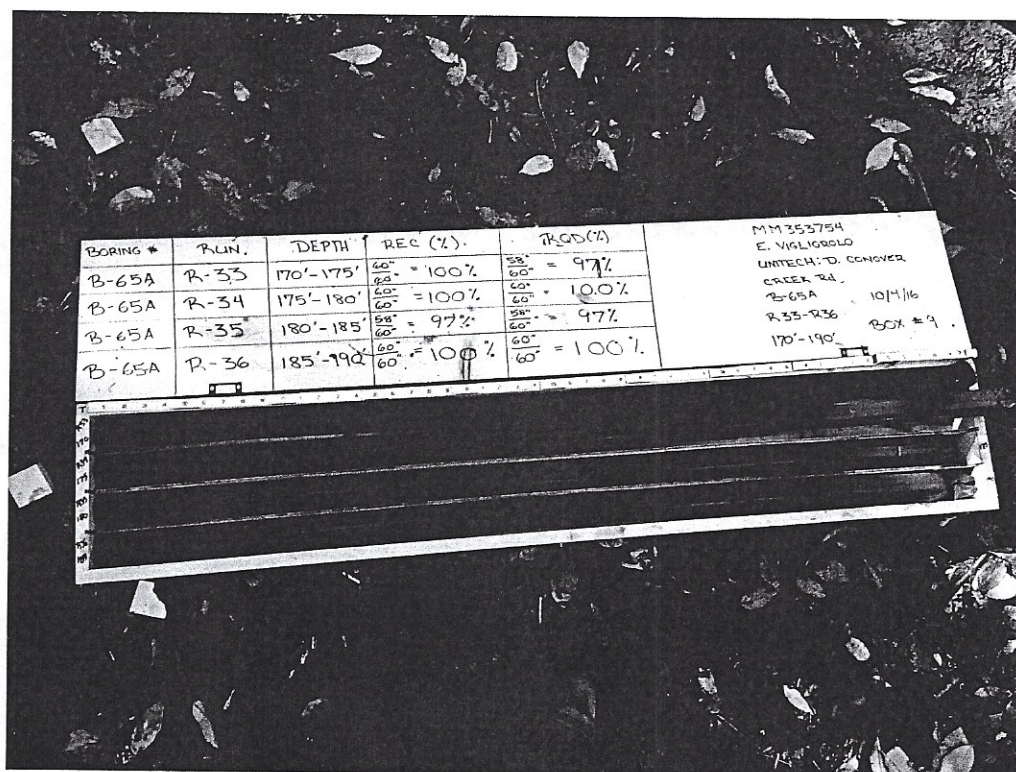 BORING # RUN. DEPTH REC (%). RQD (%)
B-65A R-33 170'-175' 60"/60" = 100% 58"/60" = 97%
B-65A R-34 175'-180' 60"/60" = 100% 60"/60" = 100%
B-65A R-35 180'-185' 58"/60" = 97% 58"/60" = 97%
B-65A R-36 185'-190' 60"/60" = 100% 60"/60" = 100%
MM353754
E. VIGLIOROLO
UNITECH: D. CONOVER
CREEK Rd.
B-65A 10/4/16
R33-R36 BOX #9.
170'-190'